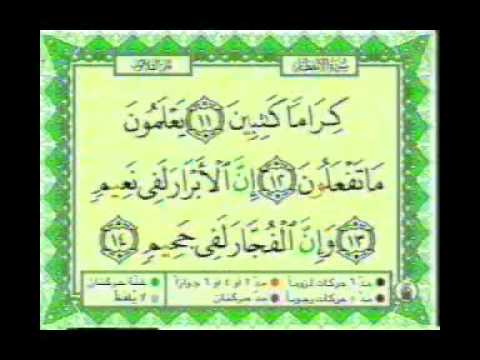 سورة الانفطار
جزء الثلاثون
كِرَامًا كَٰتِبِينَ ١١ يَعْلَمُونَ
مَا تَفْعَلُونَ ١٢ إِنَّ ٱلْأَبْرَارَ لَفِى نَعِيمٍ
١٣ وَإِنَّ ٱلْفُجَّارَ لَفِى جَحِيمٍ ١٤
مدّ ٦ حركات لزوماً مدّ ٢ أو ٤ أو ٦ جوازاً غنّة حركتان
حركات وجوباً مدّ حركتان لا يُلفظ